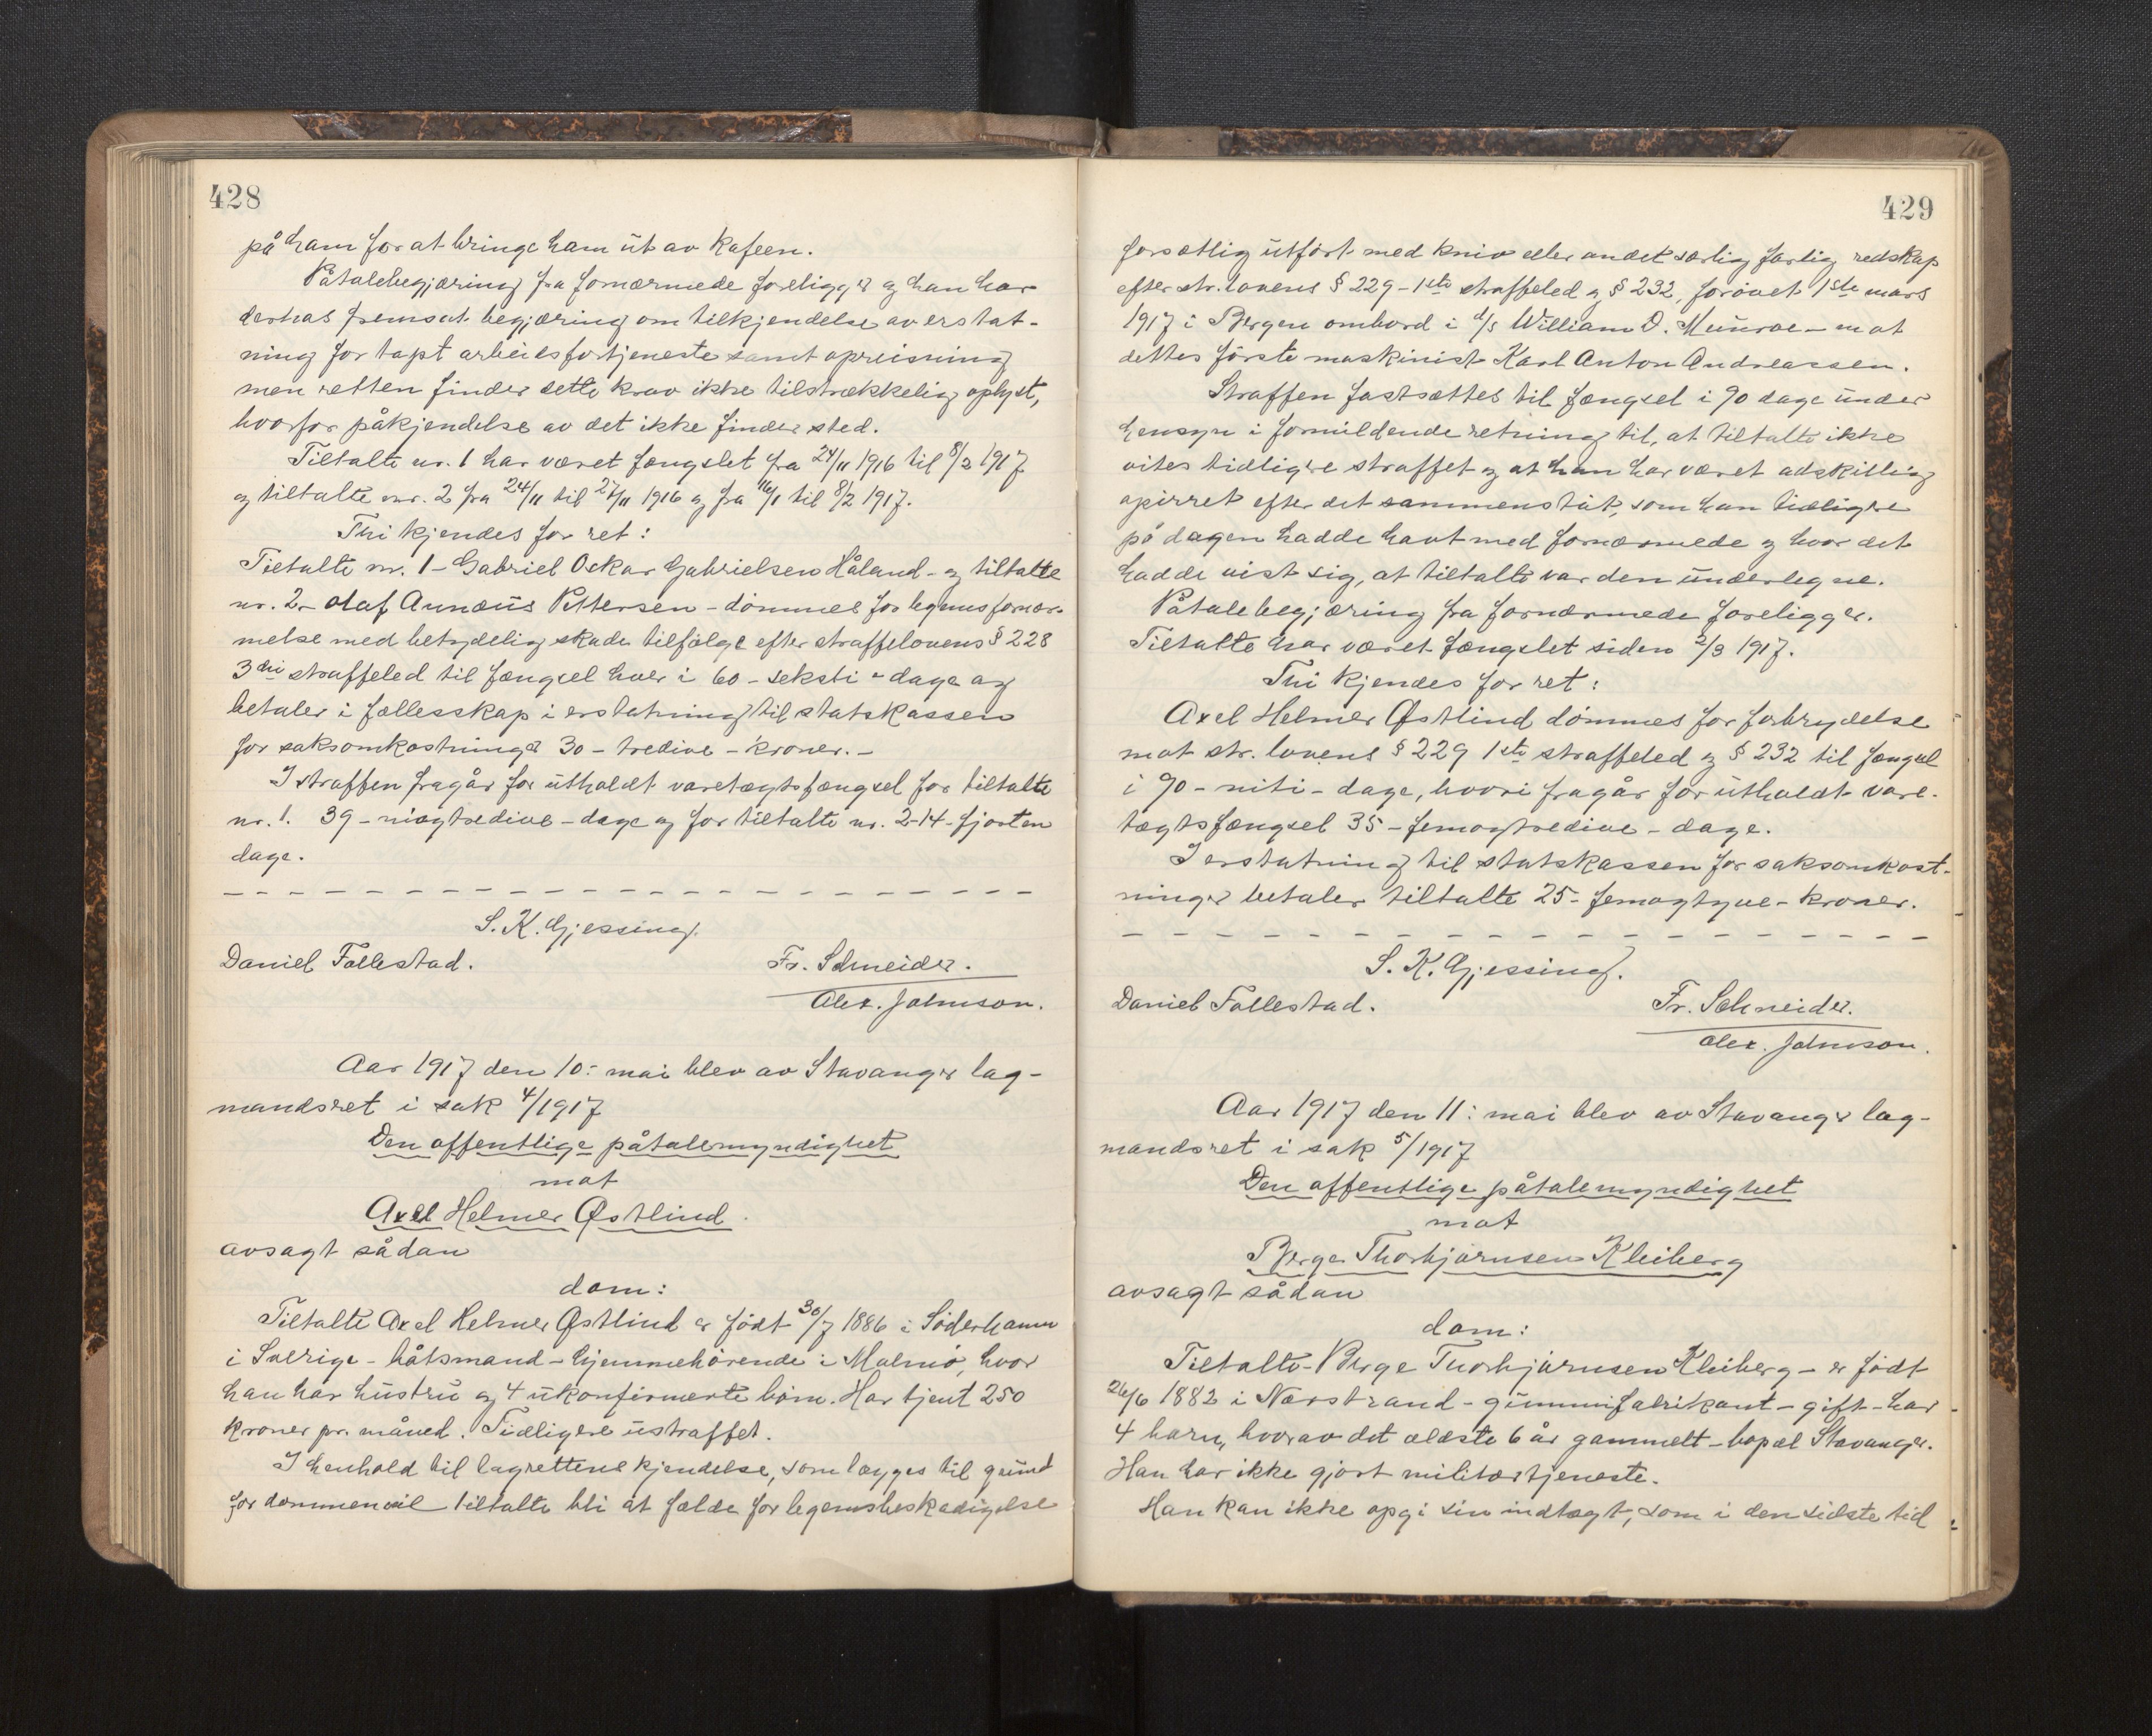 428
på ham for at bringe ham ut av kafeen.
Påtalebegjæring fra fornærmede foreligger og han har
derhos fremsat begjæring om tilkjendelse av erstat-
ning for tapt arbeidsfortjeneste samt opreisning
men retten finder dette krav ikke tilstrækkelig oplyst,
hvorfor påkjendelse av det ikke finder sted.
Tiltalte nr. 1 har været fængslet fra 24/11 1916 til 8/2 1917
og tiltalte nr. 2 fra 24/11 til 27/11 1916 og fra 16/1 til 8/2 1917.
Thi kjendes for ret:
Tiltalte nr. 1 - Gabriel Oskar Gabrielsen Håland - og tiltalte
nr. 2 - Olaf Annæus Pettersen - dømmes for legemsfornær-
melse med betydelig skade tilfølge efter straffelovens § 228
3die straffeled til fængsel hver i 60 - seksti - dage og
betaler i fællesskap i erstatning til statskassen
for saksomkostninger 30 - tredive - kroner. -
I straffen fragår for utholdt varetægtsfængsel for tiltalte
nr. 1. 39 - niogtredive - dage og for tiltalte nr. 2 - 14 - fjorten
dage.
S. K. Gjessing.
Daniel Follestad. Fr. Schneider.
Alex. Johnson.
Aar 1917 den 10: mai blev av Stavanger lag-
mandsret i sak 4/1917
Den offentlige påtalemyndighet
mot
Axel Helmer Østlind.
avsagt sådan
dom:
Tiltalte Axel Helmer Østlind er født 30/7 1886 i Söderhamn
i Sverige - båtsmand - hjemmehørende i Malmø, hvor
han har hustru og 4 ukonfirmerte børn. Har tjent 250
kroner pr. måned. Tidligere ustraffet.
I henhold til lagrettens kjendelse, som lægges til grund
for dommen vil tiltalte bli at fælde for legemsbeskadigelse
429
forsætlig utført med kniv eller andet særlig farlig redskap
efter str. lovens § 229 - 1ste straffeled og § 232, forøvet 1ste mars
1917 i Bergen ombord i d/s William D. Munroe - mot
dettes første maskinist Karl Anton Andreassen.
Straffen fastsættes til fængsel i 90 dage under
hensyn i formildende retning til, at tiltalte ikke
vites tidligere straffet og at han har været adskillig
opirret efter det sammenstøt, som han tidligere
på dagen hadde havt med fornærmede og hvor det
hadde vist sig, at tiltalte var den underlegne.
Påtalebegjæring fra fornærmede foreligger.
Tiltalte har været fængslet siden 2/3 1917.
Thi kjendes for ret:
Axel Helmer Østlind dømmes for forbrydelse
mot str. lovens § 229 1ste straffeled og § 232 til fængsel
i 90 - niti - dage, hvori fragår for utholdt vare-
tægtsfængsel 35 - femogtredive - dage.
I erstatning til statskassen for saksomkost-
ninger betaler tiltalte 25 - femogtyve - kroner.
S. K. Gjessing.
Daniel Follestad. Fr. Schneider.
Alex. Johnson.
Aar 1917 den 11: mai blev av Stavanger lag-
mandsret i sak 5/1917
Den offentlige påtalemyndighet
mot
Berge Thorbjørnsen Kleiberg
avsagt sådan
dom:
Tiltalte - Berge Thorbjørnsen Kleiberg - er født
26/6 1882 i Nærstrand - gummifabrikant - gift - har
4 barn, hvorav det ældste 6 år gammelt - bopæl Stavanger.
Han har ikke gjort militærtjeneste.
Han kan ikke opgi sin indtægt, som i den sidste tid